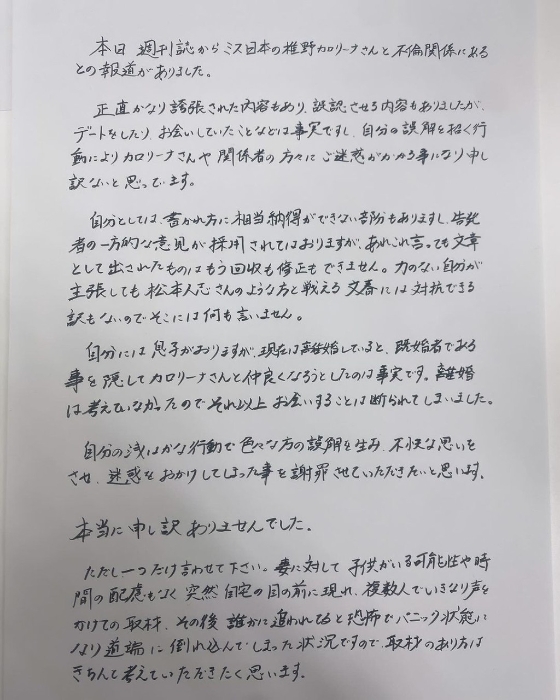 本日 週刊誌からミス日本の椎野カロリーナさんと不倫関係にある
との報道がありました。
正直かなり誇張された内容もあり、誤認させる内容もありましたが、
デートをしたり、お会いしていたことなどは事実ですし、自分の誤解を招く行
動によりカロリーナさんや関係者の方々にご迷惑がかかる事になり申し
訳ないと思っています。
自分としては、書かれ方に相当納得ができない部分もありますし、告発
者の一方的な意見が採用されてはおりますが、あれこれ言っても文章
として出されたものはもう回収も修正もできません。力のない自分が
主張しても松本人志さんのような方と戦える文春には対抗できる
訳もないのでそこには何も言いません。
自分には息子がおりますが、現在は離婚していると、既婚者である
事を隠してカロリーナさんと仲良くなろうとしたのは事実です。離婚
は考えていなかったのでそれ以上お会いすることは断られてしまいました。
自分の浅はかな行動で色々な方の誤解を生み、不快な思いを
させ、迷惑をおかけしてしまった事を謝罪させていただきたいと思います。
本当に申し訳ありませんでした。
ただし一つだけ言わせて下さい。妻に対して子供がいる可能性や時
間の配慮もなく突然自宅の目の前に現れ、複数人でいきなり声を
かけての取材、その後 誰かに追われてると恐怖でパニック状態に
なり道端に倒れ込んでしまった状況ですので、取材のあり方は
きちんと考えていただきたく思います。